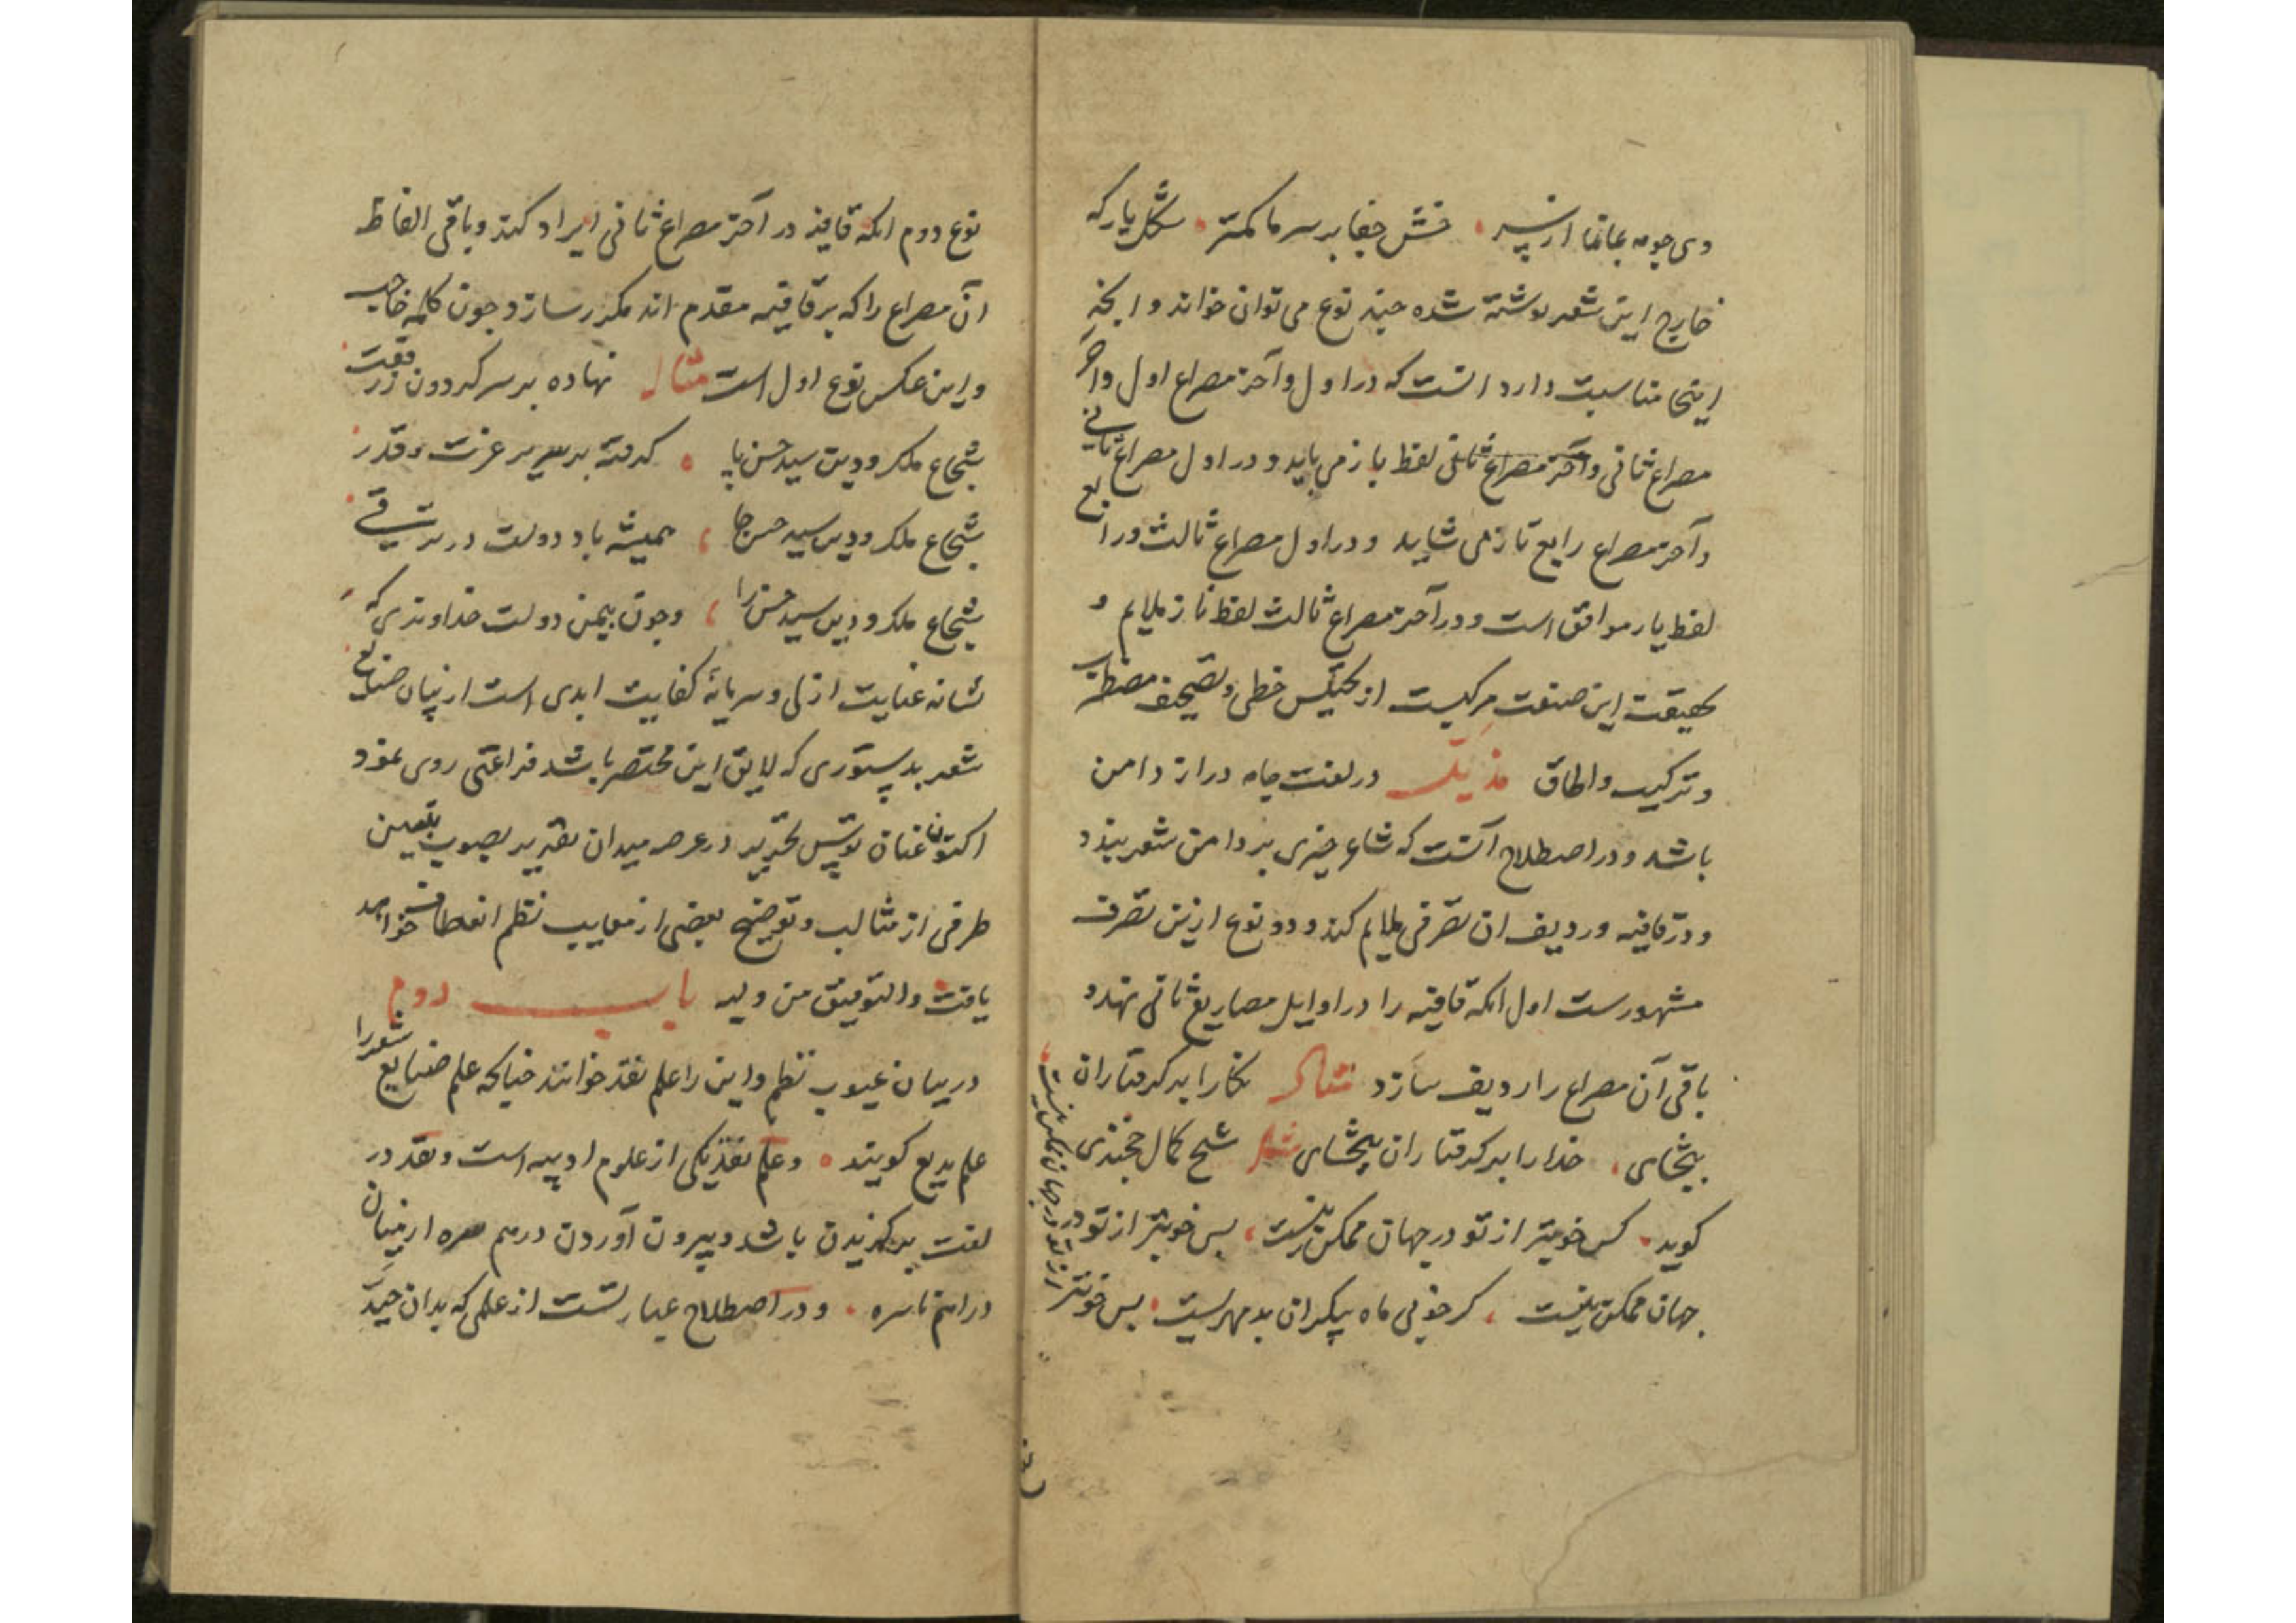 خارج این شعر نوشته شده چند نوع می توان خواند و انچه
اینجا مناسبت دارد انست که در اول و آخر مصراع اول و آخر
مصراع ثانی و آخر مصراع ثانی لفظ باز می باید و در اول مصراع ثانی
و آخر مصراع رابع تاز می شاید و در اول مصراع ثالث و رابع
لفظ یار موافق است و در آخر مصراع ثالث لفظ ناز ملایم و
بحقیقت این صنعت مرکبست از تجنیس خطی و تصحیف مضطرب
و ترکیب و الحاق مذیل در لغت جامه دراز دامن
باشد و در اصطلاح آنست که شاعر چیزی بر دامن شعر بندد
و در قافیه و ردیف ان تصرفی ملایم کند و دو نوع ازین تصرف
مشهورست اول انکه قافیه را در اوایل مصاریع ثانی نهد و
باقی آن مصراع را ردیف سازد مثال نگارا بر گرفتاران
ببخشای خدا را بر گرفتاران ببخشای شیخ کمال خجندی
گوید کس خوبتر از تو در جهان ممکن نیست بس خوبتر از تو در
جهان ممکن نیست گر خوبی ماه پیکران بد مهریست بس خوبتر
از تو در جهان ممکن نیست
نوع دوم انکه قافیه در آخر مصراع ثانی ایراد کند و باقی الفاظ
ان مصراع را که بر قافیه مقدم اند مکرر سازد چون کلمه حاجب
و این عکس نوع اول است مثال نهاده بر سر گردون ز رفعت
شجاع ملک و دین سید حسن پا گرفته بر سریر عزت و قدر
شجاع ملک و دین سید حسن جا همیشه باد دولت در ترقی
شجاع ملک و دین سید حسن را و چون بیمن دولت خداوندی که
نشانه عنایت ازلی و سرمایه کفایت ابدی است از بیان صنایع
شعر بدستوری که لایق این مختصر باشد فراغتی روی نمود
اکنون عنان توسن تحریر در عرصه میدان تقریر بصوب تعیین
طرفی از مثالب و توضیح بعضی از معایب نظم انعطاف خواهد
یافت والتوفیق من ولیه باب دوم
در بیان عیوب نظم و این را علم نقد خوانند چنانکه علم صنایع شعر را
علم بدیع گویند و علم نقد یکی از علوم ادبیه است و نقد در
لغت برگزیدن باشد و بیرون آوردن درهم سره از میان
دراهم ناسره و در اصطلاح عبارتست از علمی که بدان جید